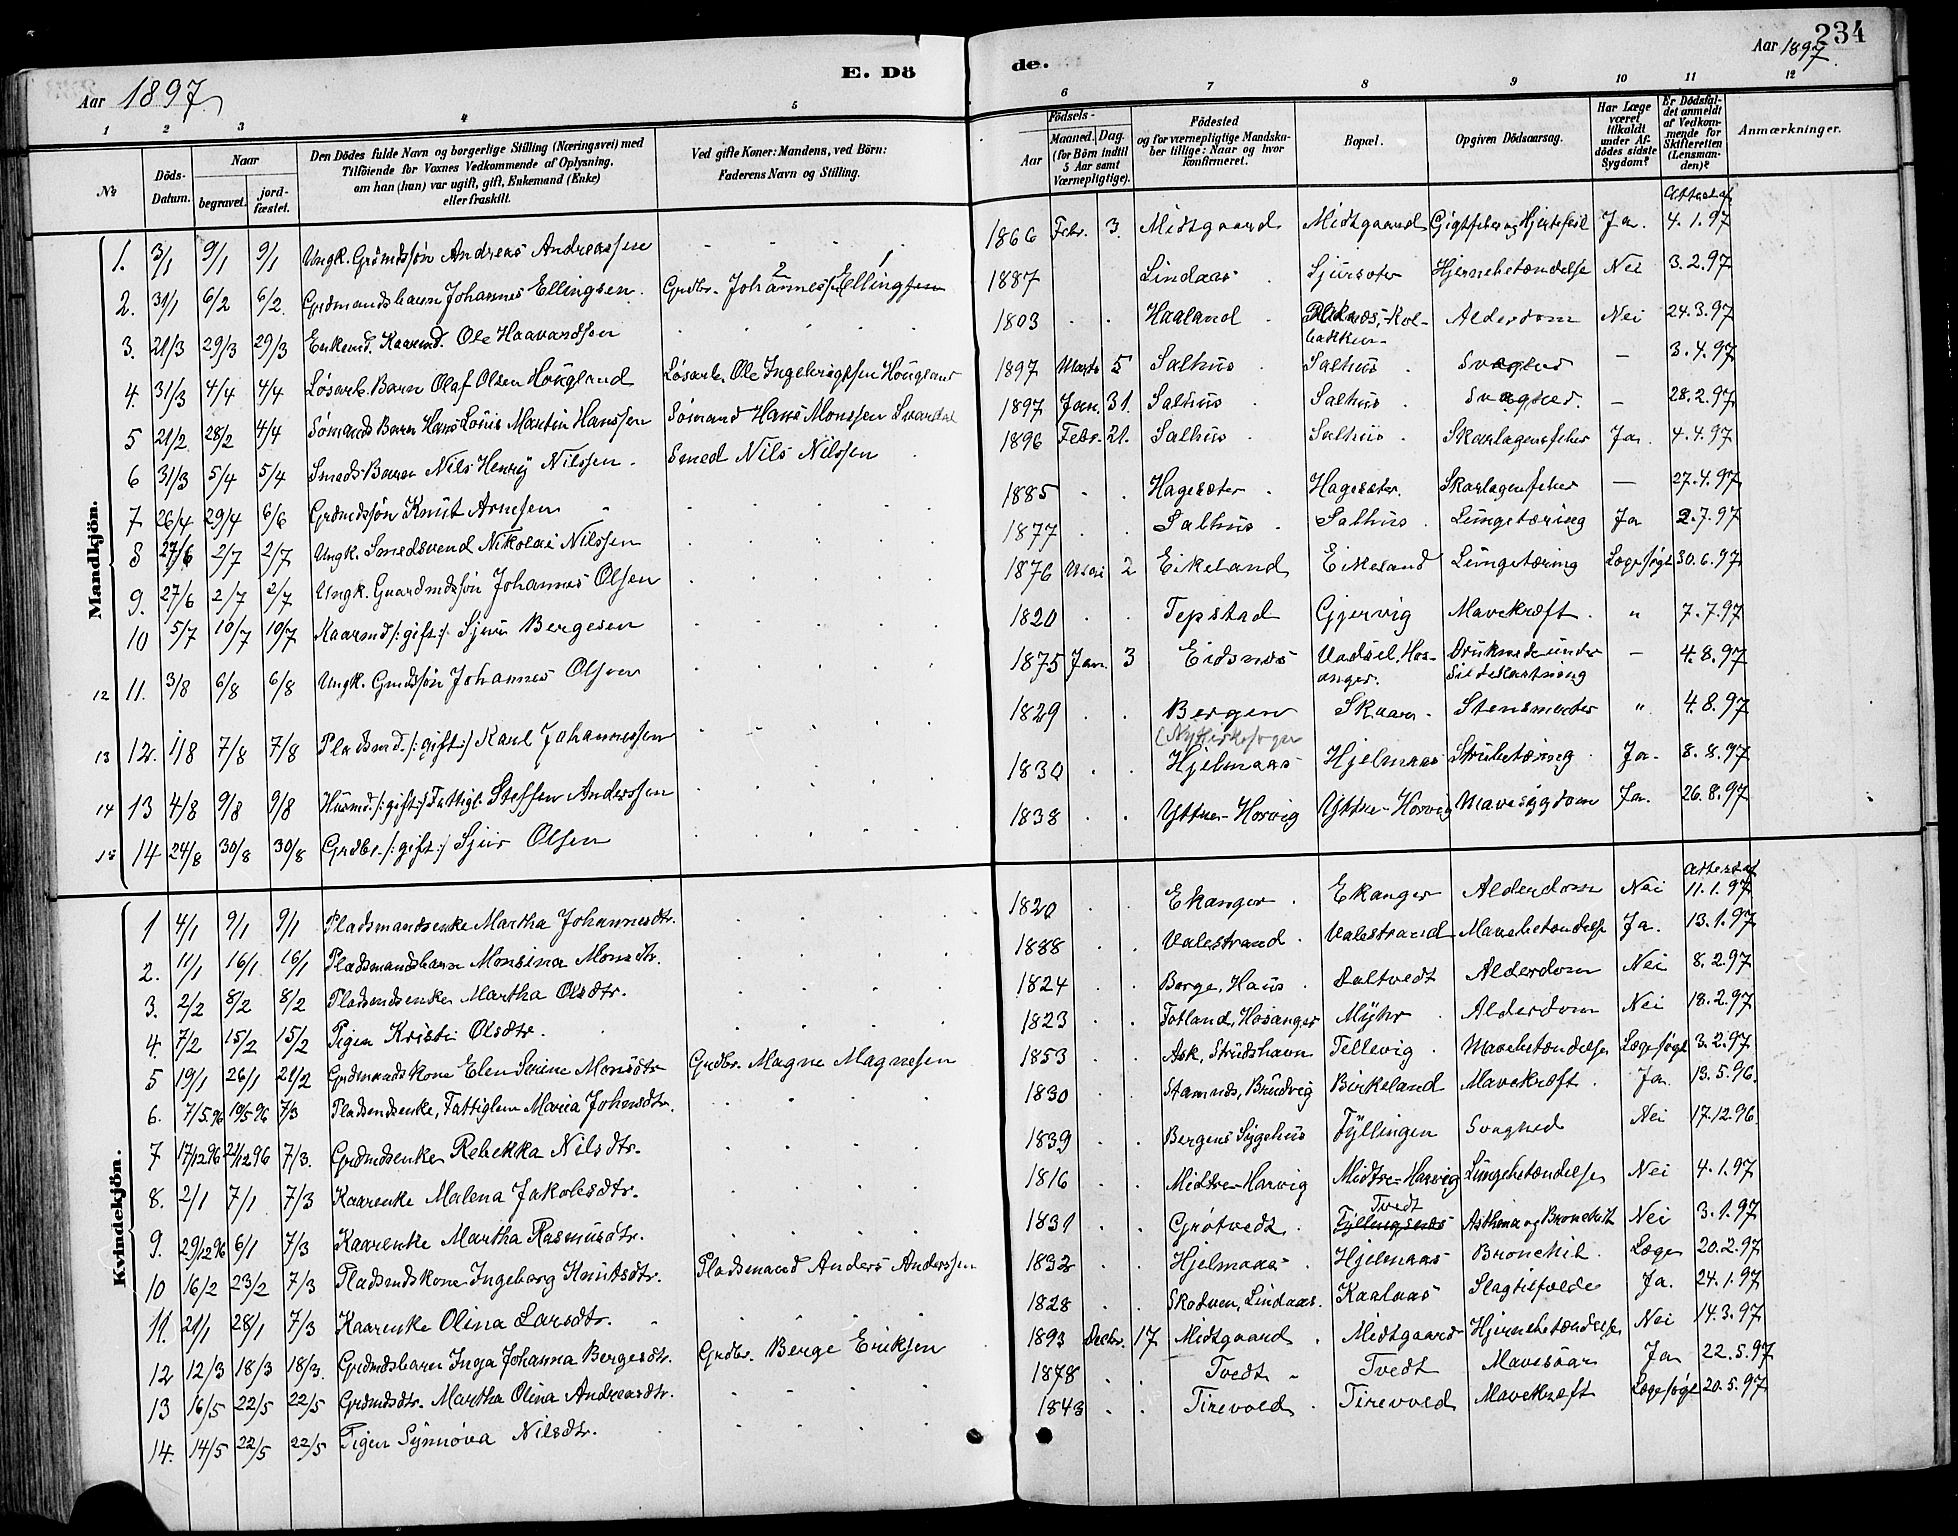 234
Aar 1897.
E. Dö
de.
Aar 1897.
1 2 3 4 5 6 7 8 9 10 11 12
№
Döds-Datum.
Naar
begravet.
jord-fæstet.
Den Dödes fulde Navn og borgerlige Stilling (Næringsvei) med
Tilföiende for Voxnes Vedkommende af Oplysning,
om han (hun) var ugift, gift, Enkemand (Enke)
eller fraskilt.
Ved gifte Koner: Mandens, ved Börn:
Faderens Navn og Stilling.
Födsels-
Aar
Maaned. Dag.
(for Börn indtil
5 Aar samt
Værnepligtige).
Födested
og for værnepligtige Mandska-
ber tillige: Naar og hvor
konfirmeret.
Bopæl.
Opgiven Dödsaarsag.
Har Læge
været
tilkaldt
under Af-
dödes sidste
Sygdom?
Er Dödsfal-
det anmeldt
af Vedkom-
mende for
Skifteretten
(Lensman-
den)?
Anmærkninger.
Mandkjön.
Attest af
1. 3/1 9/1 9/1 Ungk. Grdmdssøn Andreas Andreassen 1866 Febr. 3. Midtgaard Midtgaard Gigtfeber og Hjertefeil Ja. 4.1.97
2. 31/1 6/2 6/2 Grdmandsbarn Johannes Ellingsen Grdbr. Johannes Ellingsen 1887 Lindaas Sjursæter Hjernebetændelse Nei 3.2.97
3. 21/3 29/3 29/3 Enkemd. Kaarmd. Ole Haavardsen 1803 Haaland Alderdom Nei 24.3.97
4. 31/3 4/4 4/4 Løsarb. Barn Olaf Olsen Hougland Løsarb. Ole Ingebrigtsen Hougland 1897 Marts 5 Salhus Salhus Svaghed – 3.4.97
5 21/2 28/2 4/4 Sømands Barn Hans Louis Martin Hanssen Sømand Hans Monssen Svardal 1897 Jan. 31. Salhus Salhus Svaghed. – 28.2.97
6 31/3 5/4 5/4 Smeds Barn Nils Henry Nilssen Smed Nils Nilssen 1896 Febr. 21. Salhus Salhus Skarlagensfeber Ja. 4.4.97
7 26/4 29/4 6/6 Grdmdssøn Knut Arnesen 1885 Hagesæter Hagesæter. Skarlagensfeber – 27.4.97
8 27/6 2/7 2/7 Ungk. Smedsvend Nikolai Nilssen 1877 Salhus Salhus Lungetæring Ja 2.7.97
9. 27/6 2/7 2/7 Ungk. Gaardmdssøn Johannes Olsen 1876 Mai 2 Eikeland Eikeland Lungetæring Læge søgt 30.6.97
10 5/7 10/7 10/7 Kaarmd /: gift :/ Sjur Bergesen 1820 Tepstad Gjervig Mavekræft " 7.7.97
12 11. 3/8 6/8 6/8 Ungk. Grmdssøn Johannes Olsen 1875 Jan. 3 Eidsnes Vadsel, Hos-
anger. Druknede under
Sildekastning – 4.8.97
13 12. 1/8 7/8 7/8 Pladsmd. /: gift :/ Karl Johannessen 1829 Bergen
(Nykirkesogn Skaar Stensmerter " 4.8.97
14 13 4/8 9/8 9/8 Husmd. /: gift :/ Fattigl. Steffen Anderssen 1830 Hjelmaas Hjelmaas Strubetæring Ja. 8.8.97
15 14 24/8 30/8 30/8 Grdbr. /: gift :/ Sjur Olsen 1838 Yttre-Horvig Yttre-Horvig Mavesygdom Ja. 26.8.97
Kvindekjön.
Attest af
1 4/1 9/1 9/1 Pladsmandsenke Martha Johannesdtr. 1820 Ekanger Ekanger Alderdom Nei 11.1.97
2. 11/1 16/1 16/1 Pladsmandsbarn Monsina Monsdtr. 1888 Valestrand Valestrand Mavebetændelse Ja. 13.1.97
3. 2/2 8/2 8/2 Pladsmdsenke Martha Olsdtr. 1824 Borge, Haus Daltvedt Alderdom Nei 8.2.97
4. 7/2 15/2 15/2 Pigen Kristi Olsdtr. 1823 Totland, Hosanger Myhr Alderdom Nei 18.2.97
5 19/1 26/1 21/2 Grdmands Kone Elen Serine Monsdtr Grdbr. Magne Magnesen 1853 Ask, Strudshavn Tellevig Mavebetændelse Læge søgt 3.2.97
6. 7/5.96 19/5 96 7/3 Pladsmdsenke, Fattiglem Maria Johnsdtr. 1830 Stamnes, Brudvig Birkeland Mavekræft Ja 13.5.96.
7 17/12 96 21/12 96 7/3. Grdmdsenke Rebekka Nilsdtr. 1839 Bergens Sygehus Fyllingen Svaghed Nei 17.12.96.
8. 2/1 7/1 7/3 Kaarenke Malena Jakobsdtr. 1816 Midtre-Horvig Midtre-Horvig Lungebetændelse Nei 4.1.97
9. 29/12 96 6/1 7/3 Kaarenke Martha Rasmusdtr. 1831 Grøtvedt Tvedt
Fyllingsnes Asthma og Bronchit Nei 3.1.97
10 16/2 23/2 7/3 Pladsmdskone Ingeborg Knutsdtr. Pladsmand Anders Anderssen 1832 Hjelmaas Hjelmaas Bronchit. Læge 20.2.97
11. 21/1 28/1 7/3 Kaarenke Olina Larsdtr. 1828 Skodven, Lindaas. Kaalaas Slagtilfælde Ja. 24.1.97
12 12/3 18/3 18/3. Grdmdsbarn Inga Johanna Bergesdtr. Grdbr. Berge Eriksen 1893 Decbr. 17 Midtgaard Midtgaard Hjernebetændelse Nei 14.3.97
13 16/5 22/5 22/5 Grdmdsdtr. Martha Olina Andreasdtr. 1878 Tvedt Tvedt Mavesaar Ja 22.5.97
14. 14/5 22/5 22/5 Pigen Synnøva Nilsdtr. 1843 Tirevold Tirevold Mavekræft Læge søgt 20.5.97